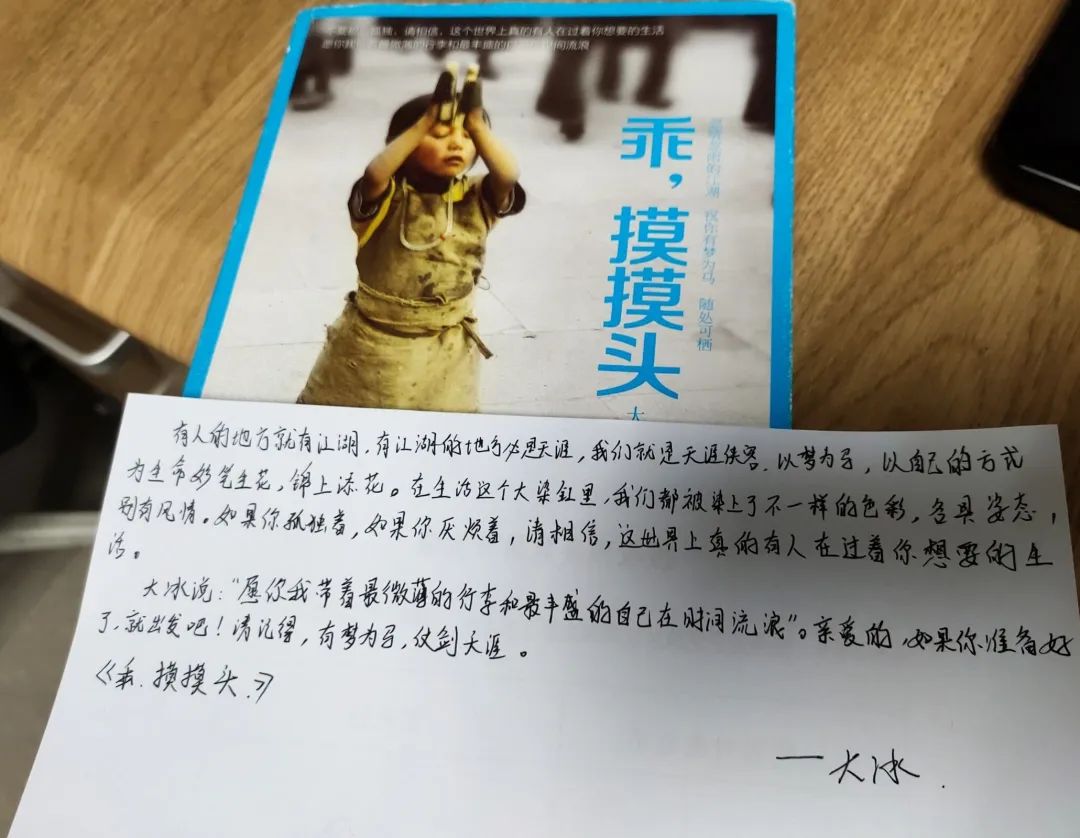 请相信，这个世界上真的有人在过着你想要的生活
乖，摸摸头
祝你有梦为马 随处可栖
大
有人的地方就有江湖，有江湖的地方必是天涯，我们就是天涯侠客，以梦为马，以自己的方式
为生命妙笔生花，锦上添花。在生活这个大染缸里，我们都被染上了不一样的色彩，各具姿态，
别有风情。如果你孤独着，如果你厌烦着，请相信，这世界上真的有人在过着你想要的生
活。
大冰说：“愿你我带着最微薄的行李和最丰盛的自己在时间流浪”。亲爱的，如果你准备好
了，就出发吧！请记得，有梦为马，仗剑天涯。
《乖.摸摸头.》
——大冰.